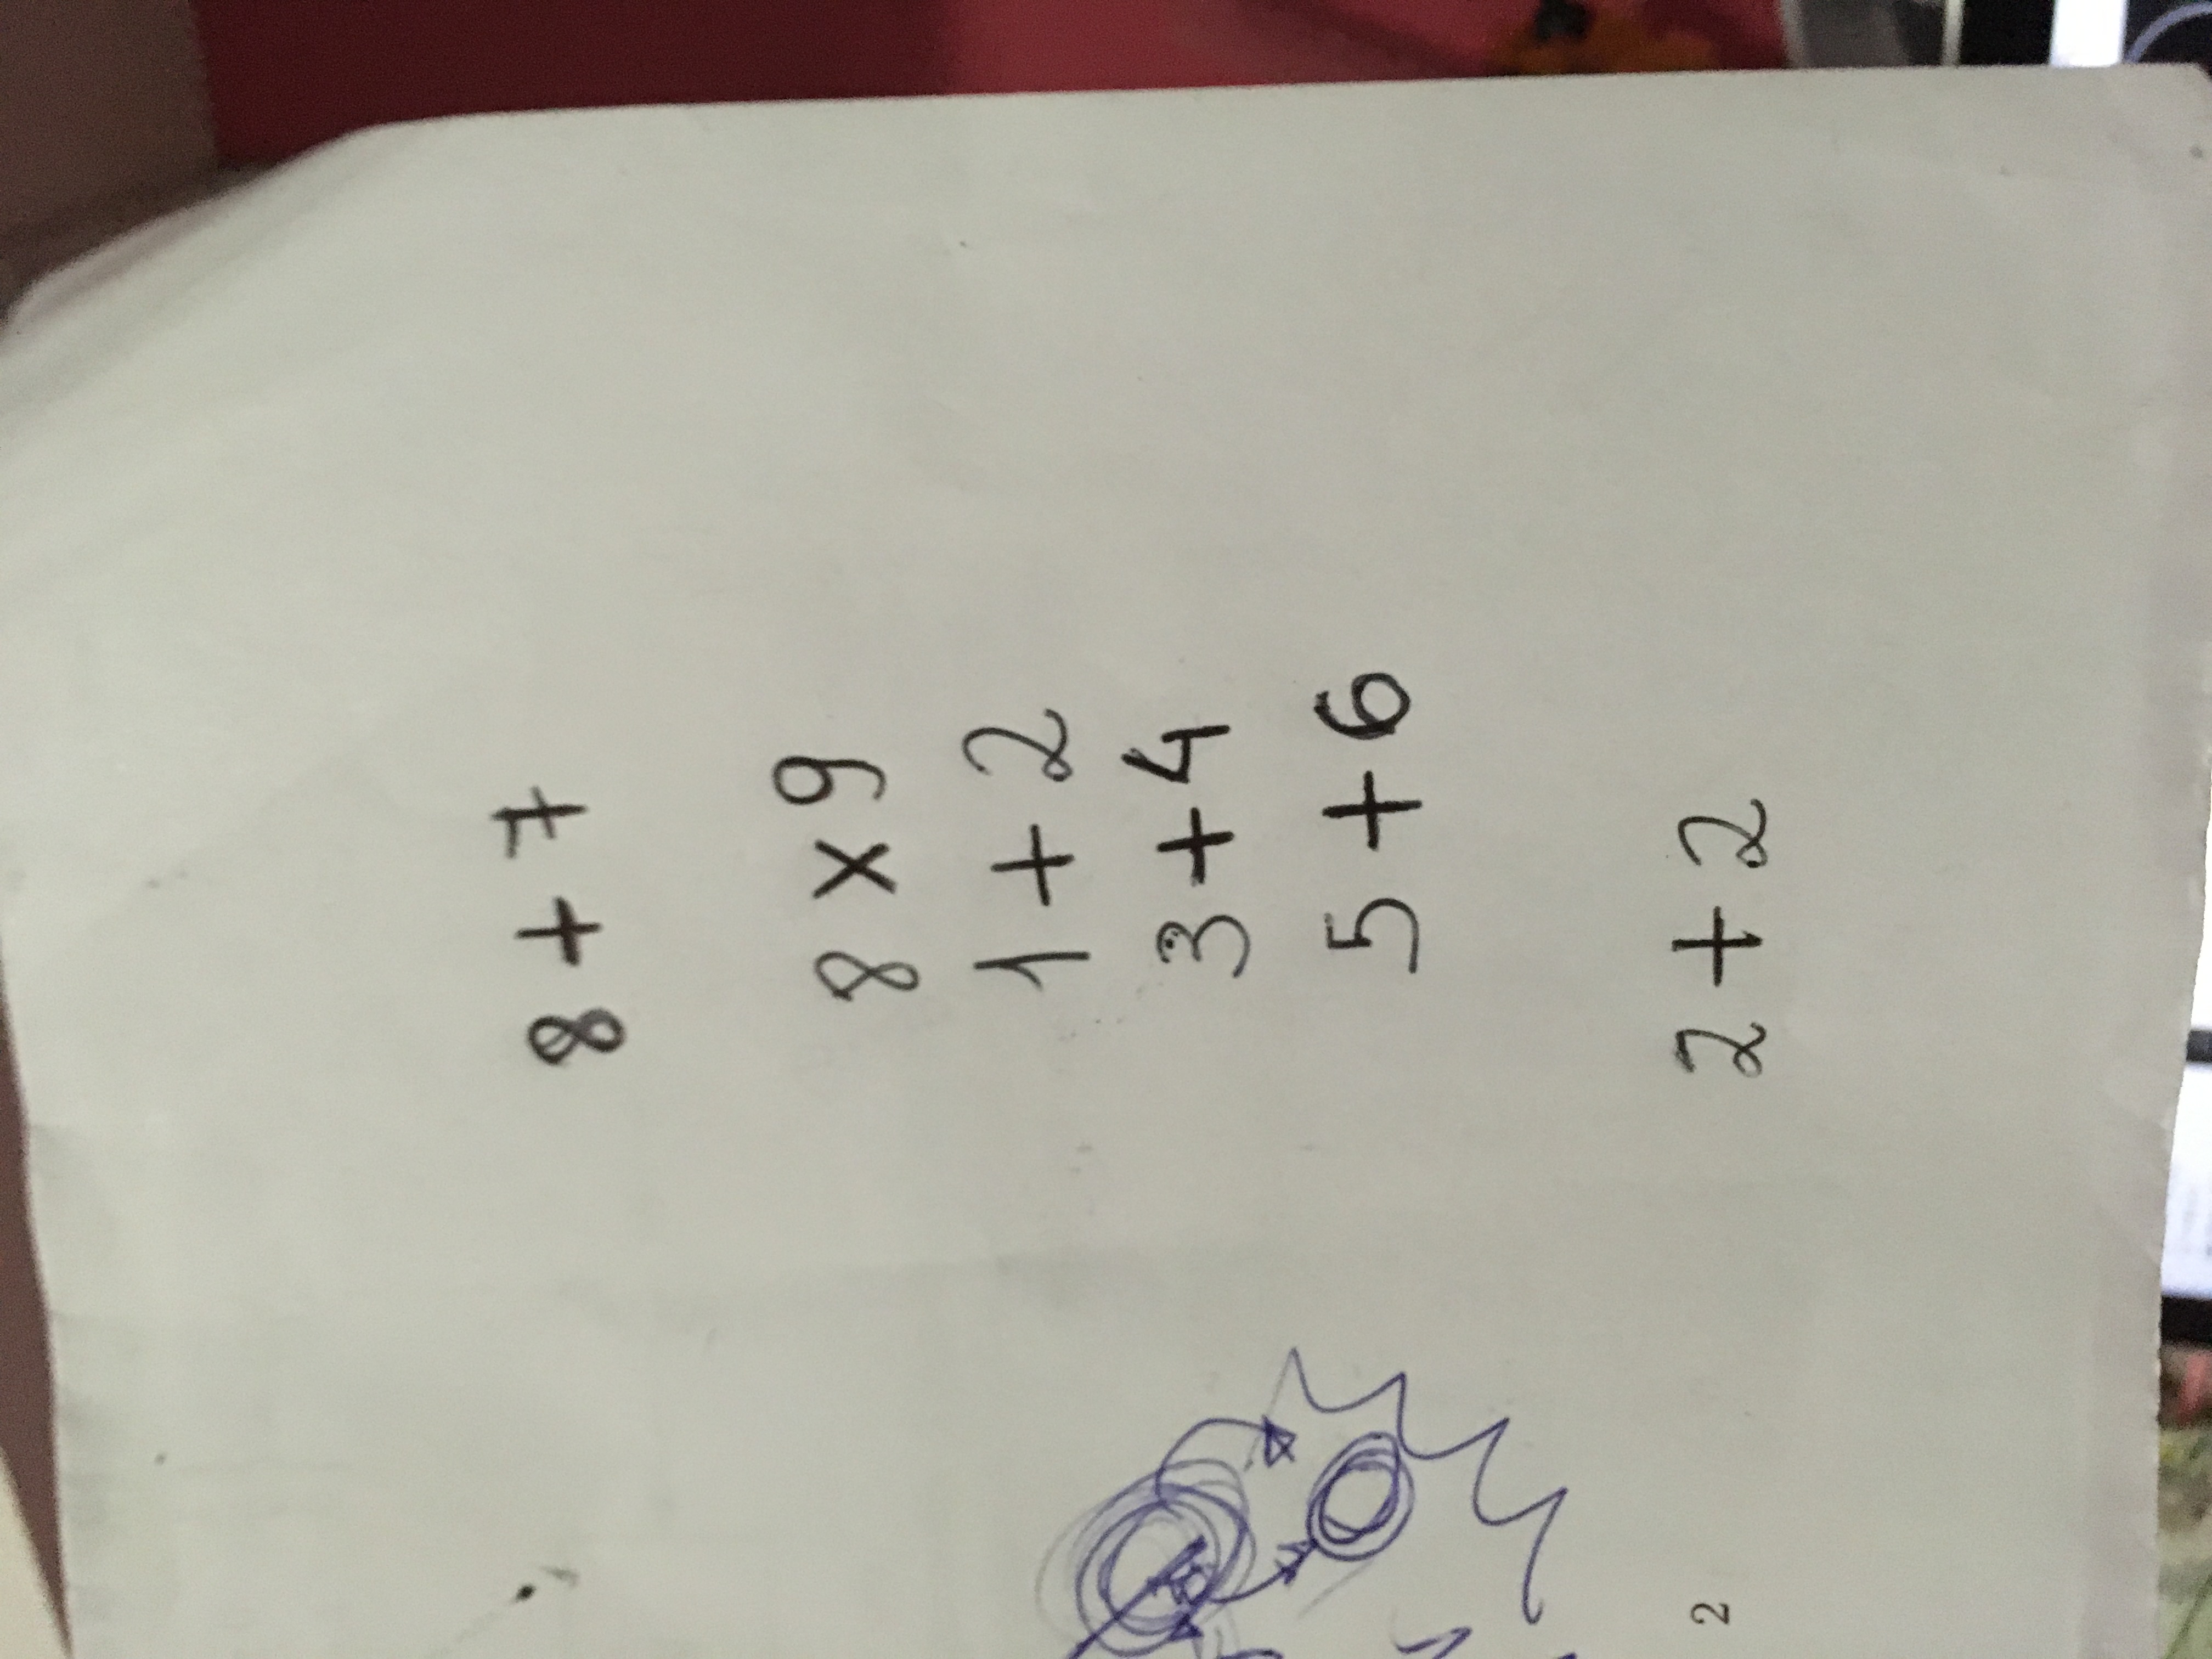 8 + 7
8 x 9
1 + 2
3 + 4
5 + 6
2 + 2
2